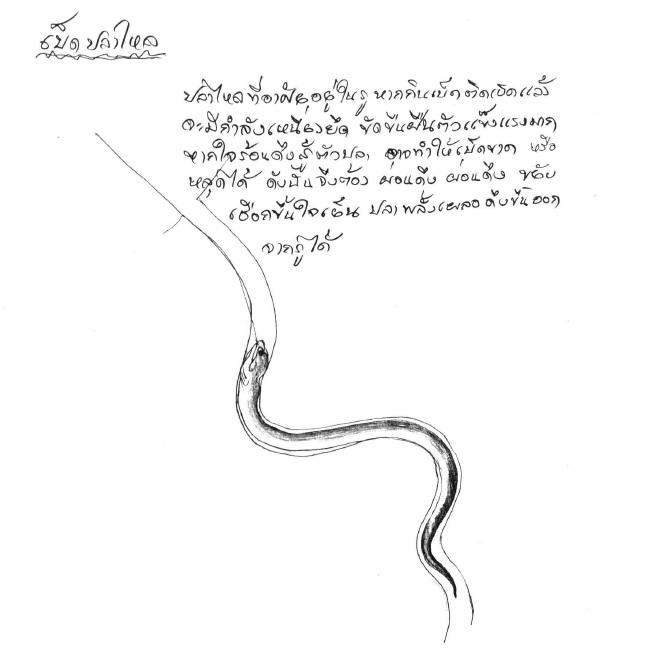 เบ็ดปลาไหล
ปลาไหลที่อาศัยอยู่ในรู หากกินเบ็ดติดเบ็ดแล้ว
จะมีกำลังเหนี่ยวยึด ขัดขืนฝืนตัวแข็งแรงมาก
หากใจร้อนดึงสู้ตัวปลา อาจทำให้เบ็ดขาด หรือ
หลุดได้ ดังนั้นจึงต้อง ผ่อนดึง ผ่อนดึง ขยับ
เชือกขึ้นใจเย็น ปลาพลั้งเผลอ ดึงขึ้นออก
จากรูได้